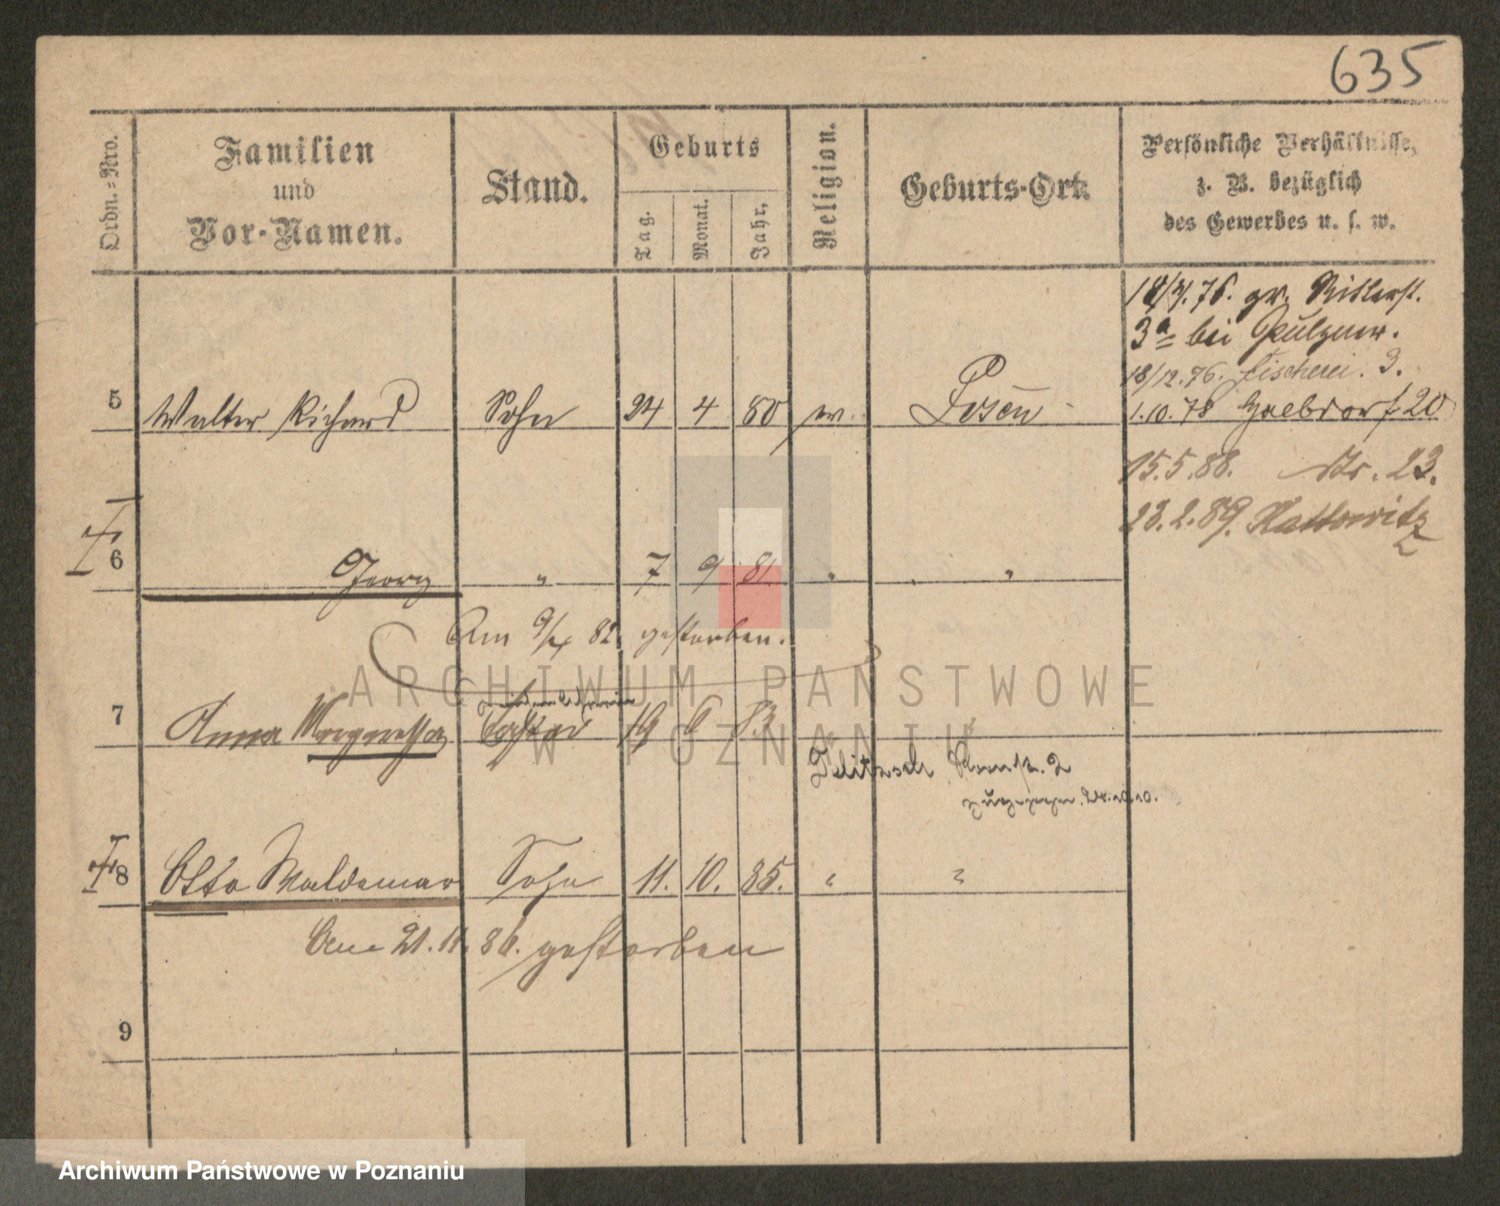 635
Ordn.=Nro.
Familien
und
Vor-Namen.
Stand.
Geburts
Tag.
Monat.
Jahr.
Religion.
Geburts-Ort.
Persönliche Verhältnisse,
z. B. bezüglich
des Gewerbes u. s. w.
gr. Ritterst.
3a bei
18/12.76. Fischerei. 3.
5 Walter Richard Sohn 24 4 80 ev. Posen
1.10.78 20
15.5.88. No. 23.
23.2.89. Kattowitz
6 Georg " 7 9 81 " "
Am 9/ 82 gestorben.
7 Anna Tochter 19 6 83
2
8 Otto Waldemar Sohn 11. 10. 85. " "
Am 21.11.86. gestorben
9
ARCHIWUM PAŃSTWOWE
W POZNANIU
Archiwum Państwowe w Poznaniu